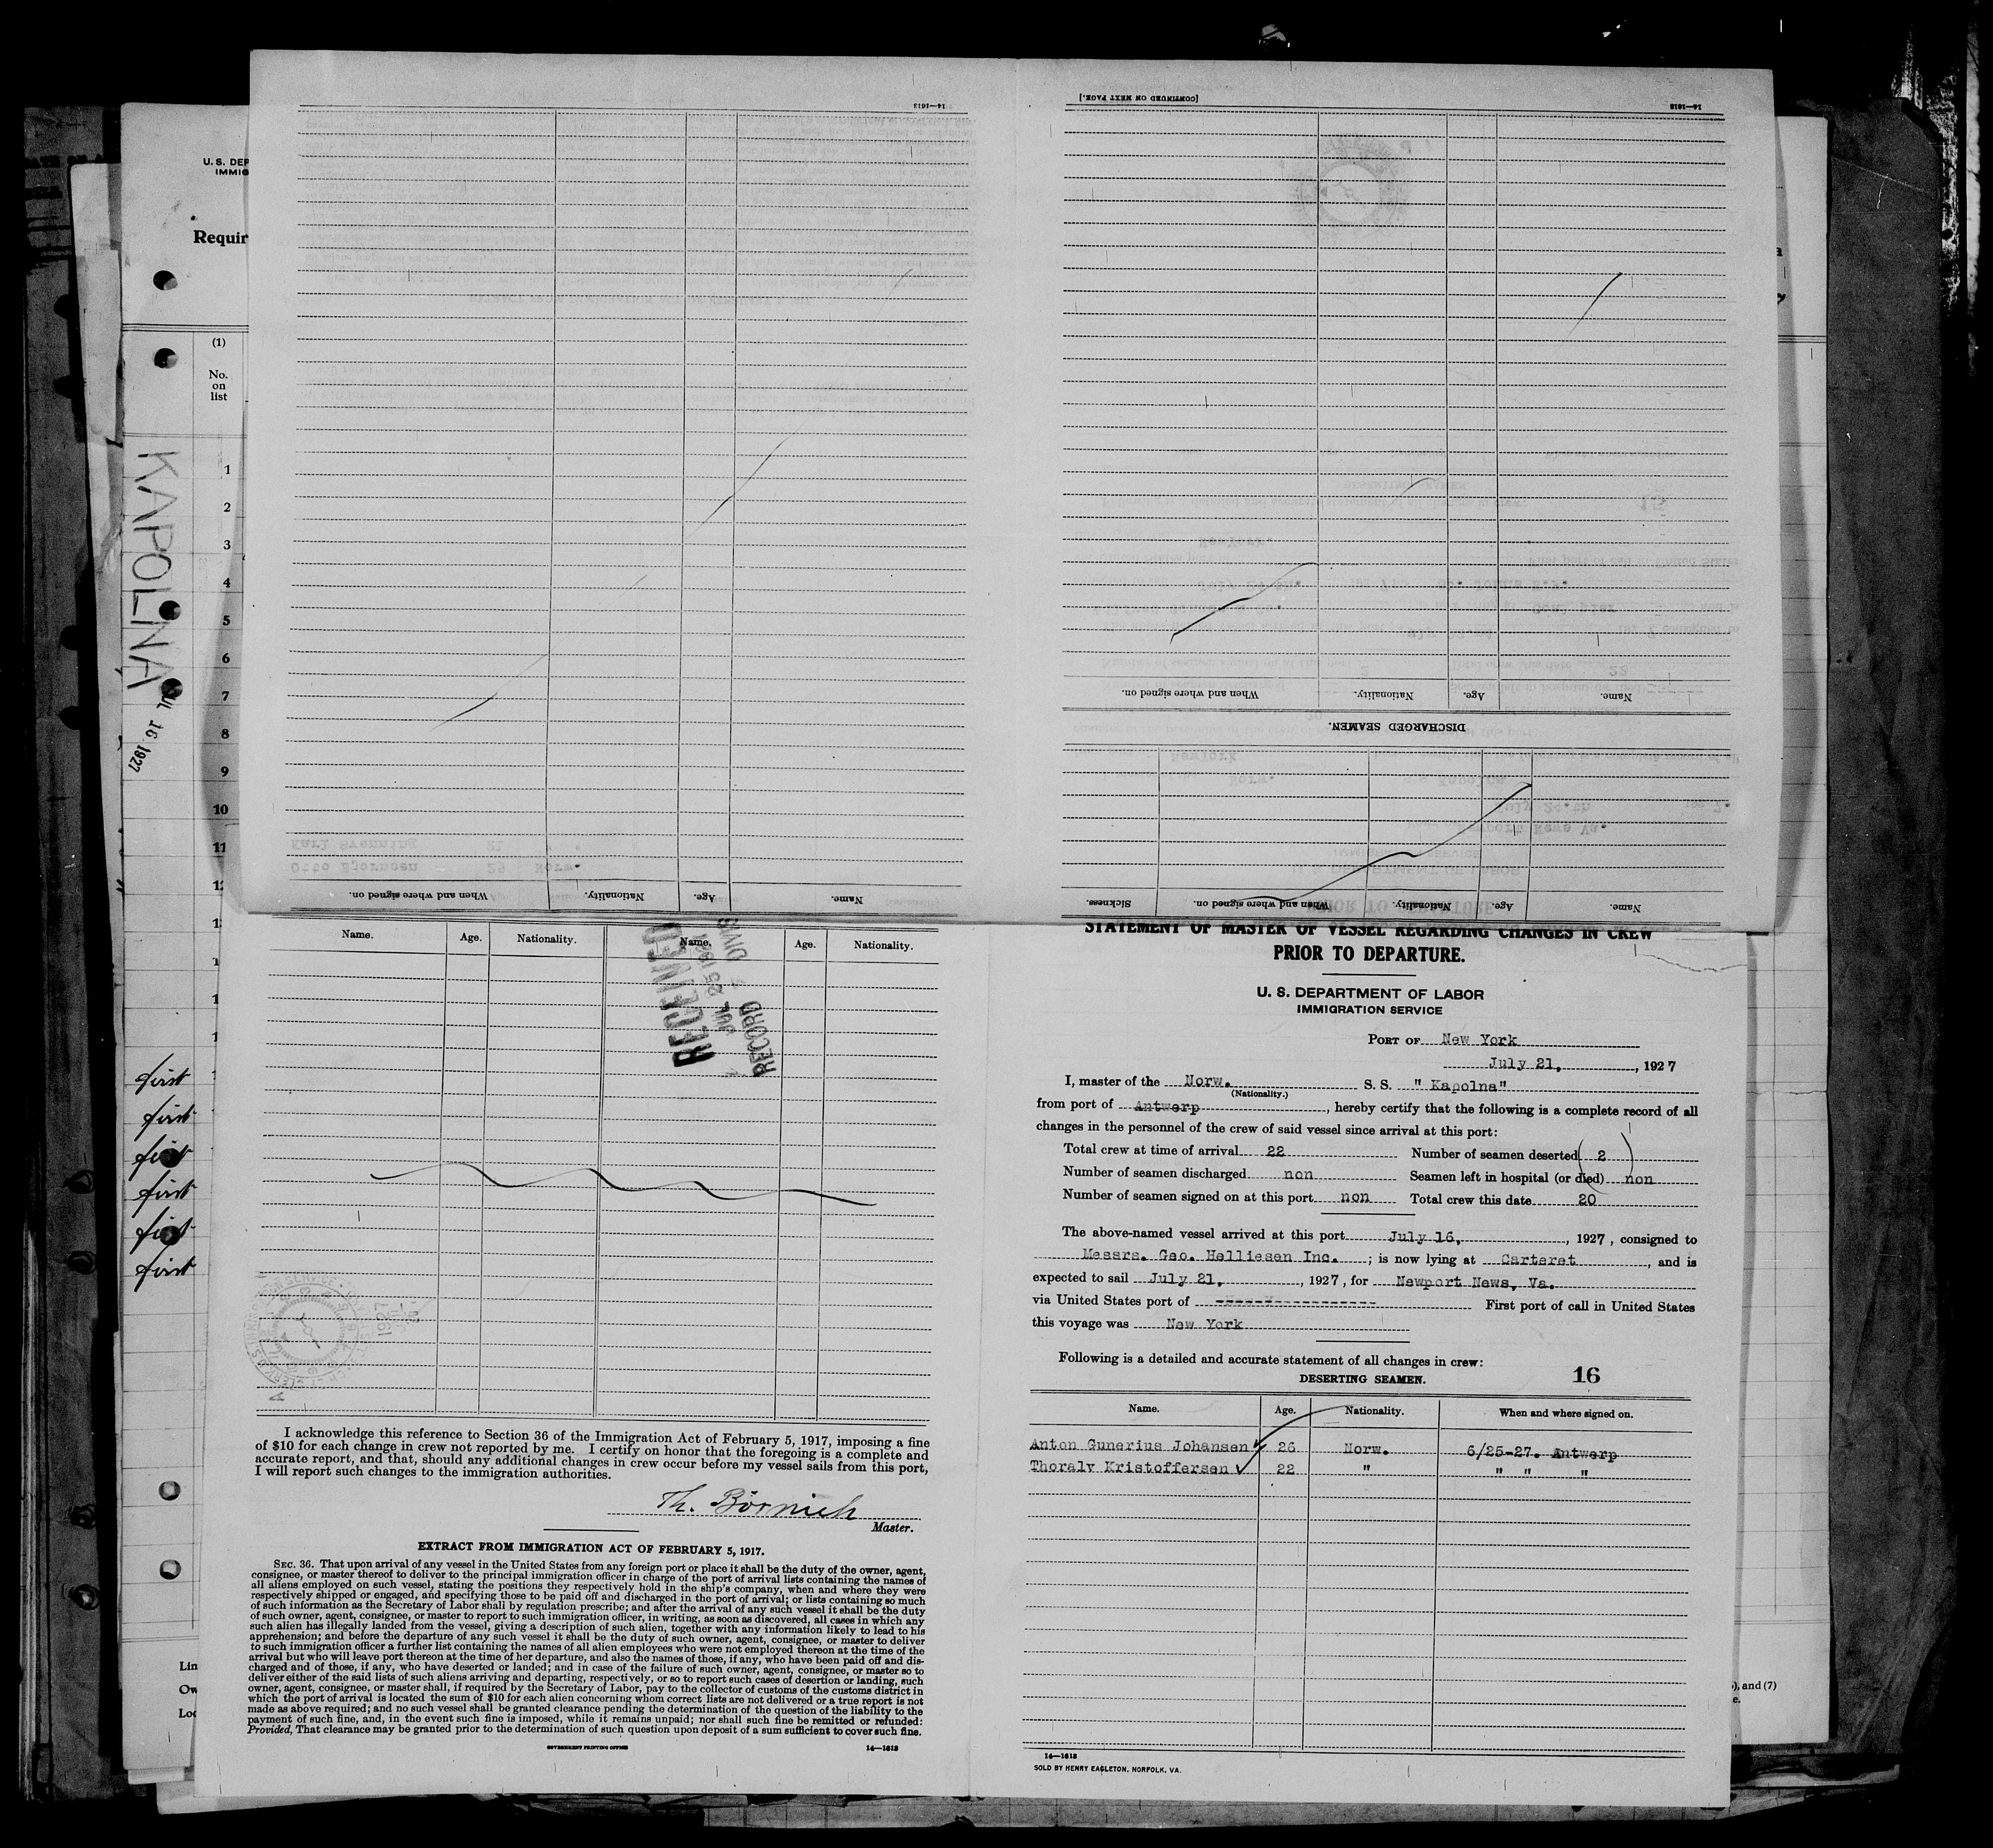 U. S. DEP
IMMIG
Requir
(1)
No.
on
list
1
2
3
4
5
6
7
8
9
10
11
KAPOLINA
JUL 16 1927
first
first
first
first
first
first
Lin
Ow
Loc
14—1613
Name.
Age.
Nationality.
When and where signed on.
[CONTINUED ON NEXT PAGE.]
14—1613
DISCHARGED SEAMEN.
Name.
Age.
Nationality.
When and where signed on.
Name.
Age.
Nationality.
When and where signed on.
Sickness.
Otto Bjornsen 29 Norw.
Karl Brenning 21
Name. Age. Nationality. Name. Age. Nationality.
RECEIVED
JUL 25 1927
RECORD
I acknowledge this reference to Section 36 of the Immigration Act of February 5, 1917, imposing a fine
of $10 for each change in crew not reported by me. I certify on honor that the foregoing is a complete and
accurate report, and that, should any additional changes in crew occur before my vessel sails from this port,
I will report such changes to the immigration authorities.
Th. Börnich
Master.
EXTRACT FROM IMMIGRATION ACT OF FEBRUARY 5, 1917.
SEC. 36. That upon arrival of any vessel in the United States from any foreign port or place it shall be the duty of the owner, agent,
consignee, or master thereof to deliver to the principal immigration officer in charge of the port of arrival lists containing the names of
all aliens employed on such vessel, stating the positions they respectively hold in the ship's company, when and where they were
respectively shipped or engaged, and specifying those to be paid off and discharged in the port of arrival; or lists containing so much
of such information as the Secretary of Labor shall by regulation prescribe; and after the arrival of any such vessel it shall be the duty
of such owner, agent, consignee, or master to report to such immigration officer, in writing, as soon as discovered, all cases in which any
such alien has illegally landed from the vessel, giving a description of such alien, together with any information likely to lead to his
apprehension; and before the departure of any such vessel it shall be the duty of such owner, agent, consignee, or master to deliver
to such immigration officer a further list containing the names of all alien employees who were not employed thereon at the time of the
arrival but who will leave port thereon at the time of her departure, and also the names of those, if any, who have been paid off and dis-
charged and of those, if any, who have deserted or landed; and in case of the failure of such owner, agent, consignee, or master so to
deliver either of the said lists of such aliens arriving and departing, respectively, or so to report such cases of desertion or landing, such
owner, agent, consignee, or master shall, if required by the Secretary of Labor, pay to the collector of customs of the customs district in
which the port of arrival is located the sum of $10 for each alien concerning whom correct lists are not delivered or a true report is not
made as above required; and no such vessel shall be granted clearance pending the determination of the question of the liability to the
payment of such fine, and, in the event such fine is imposed, while it remains unpaid; nor shall such fine be remitted or refunded:
Provided, That clearance may be granted prior to the determination of such question upon deposit of a sum sufficient to cover such fine.
GOVERNMENT PRINTING OFFICE 14—1613
STATEMENT OF MASTER OF VESSEL REGARDING CHANGES IN CREW
PRIOR TO DEPARTURE.
U. S. DEPARTMENT OF LABOR
IMMIGRATION SERVICE
PORT OF New York
July 21, , 1927
I, master of the Norw. S. S. " Kapolna"
(Nationality.)
from port of Antwerp , hereby certify that the following is a complete record of all
changes in the personnel of the crew of said vessel since arrival at this port:
Total crew at time of arrival 22 Number of seamen deserted ( 2 )
Number of seamen discharged non Seamen left in hospital (or died) non
Number of seamen signed on at this port non Total crew this date 20
The above-named vessel arrived at this port July 16, , 1927, consigned to
Messrs. Geo. Helliesen Inc. ; is now lying at Carteret , and is
expected to sail July 21, , 1927, for Newport News, Va.
via United States port of ------------ First port of call in United States
this voyage was New York
Following is a detailed and accurate statement of all changes in crew:
16
DESERTING SEAMEN.
Name. Age. Nationality. When and where signed on.
Anton Gunerius Johansen 26 Norw. 6/25-27. Antwerp
Thoralv Kristoffersen 22 " " " "
14—1613
SOLD BY HENRY EAGLETON, NORFOLK, VA.
), and (7)